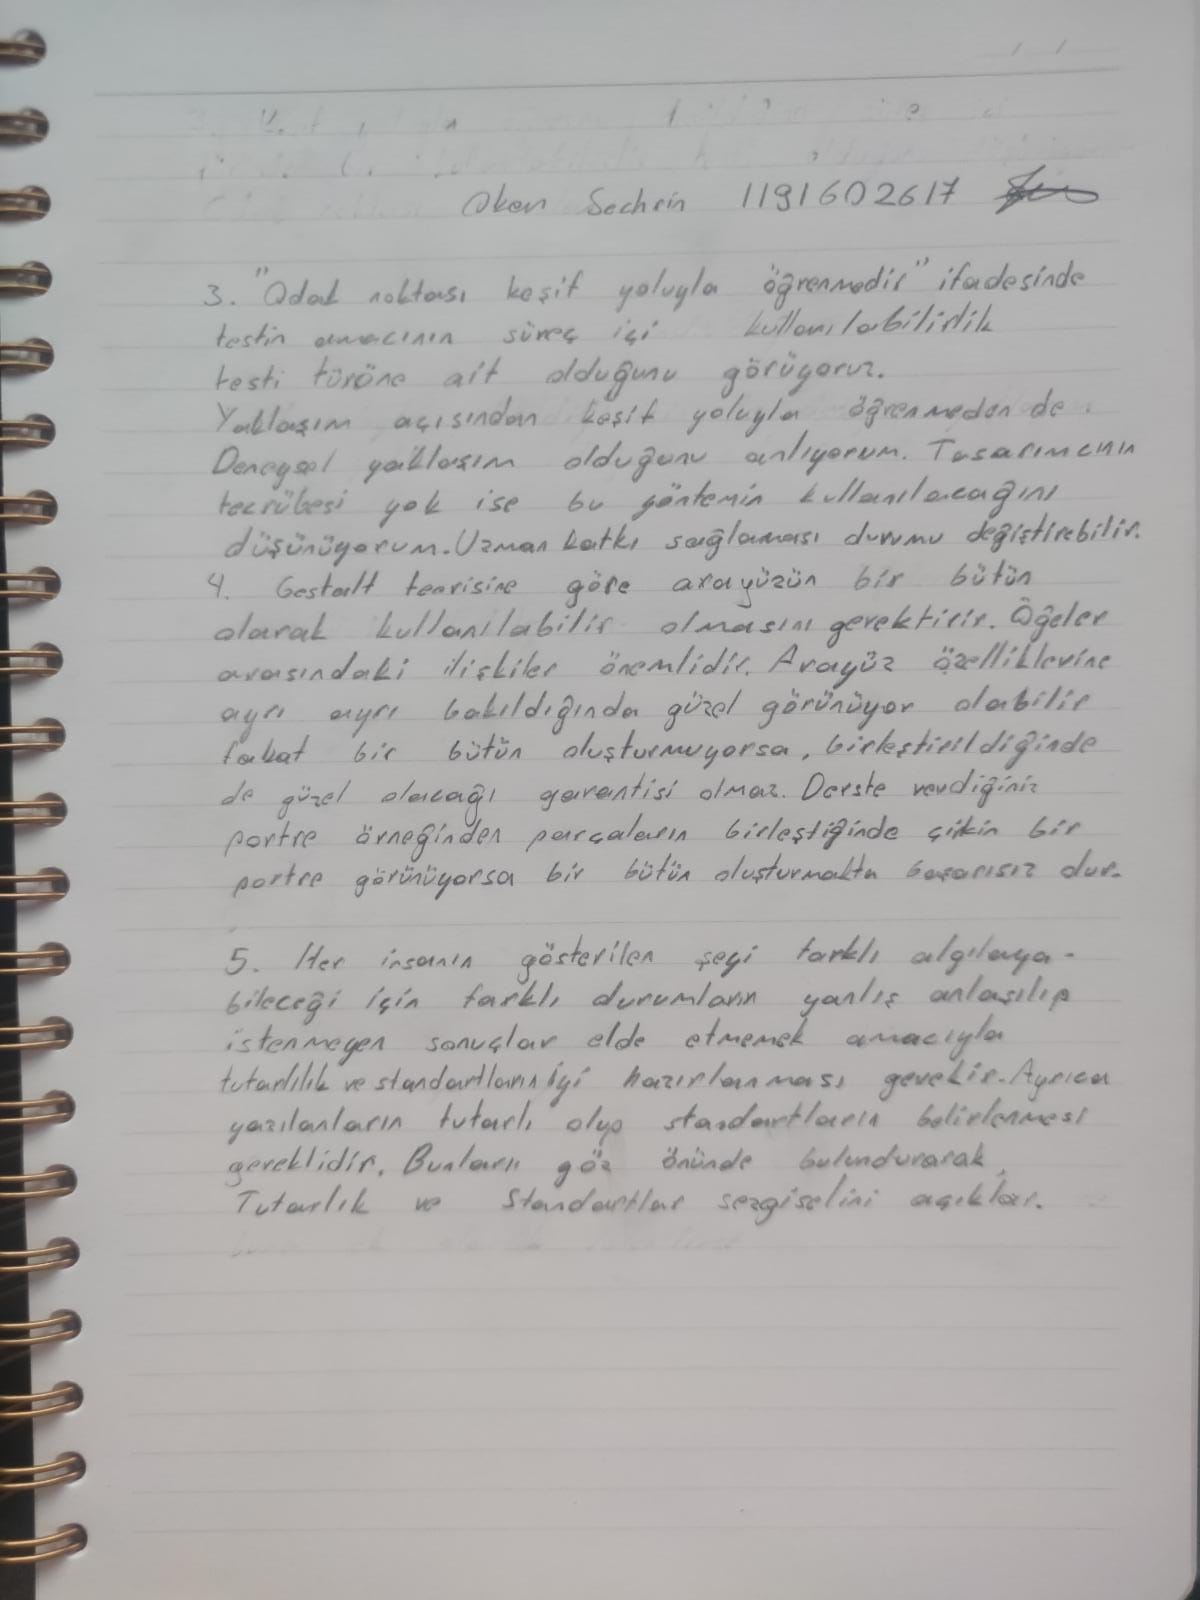 Oken Sechrin 1191602617
3. "Odak noktası keşif yoluyla öğrenmedir" ifadesinde
testin amacının süreç içi kullanılabilirlik
testi türüne ait olduğunu görüyoruz.
Yaklaşım açısından keşif yoluyla öğrenmeden de
Deneysel yaklaşım olduğunu anlıyorum. Tasarımcının
tecrübesi yok ise bu yöntemin kullanılacağını
düşünüyorum. Uzman katkı sağlaması durumu değiştirebilir.
4. Gestalt teorisine göre arayüzün bir bütün
olarak kullanılabilir olmasını gerektirir. Öğeler
arasındaki ilişkiler önemlidir. Arayüz özelliklerine
ayrı ayrı bakıldığında güzel görünüyor olabilir
fakat bir bütün oluşturmuyorsa, birleştirildiğinde
de güzel olacağı garantisi olmaz. Derste verdiğiniz
portre örneğinden parçaların birleştiğinde çirkin bir
portre görünüyorsa bir bütün oluşturmakta başarısız dur.
5. Her insanın gösterilen şeyi farklı algılaya-
bileceği için farklı durumların yanlış anlaşılıp
istenmeyen sonuçlar elde etmemek amacıyla
tutarlılık ve standartların iyi hazırlanması gerekir. Ayrıca
yazılanların tutarlı olup standartların belirlenmesi
gereklidir. Bunları göz önünde bulundurarak
Tutarlık ve Standartlar sezgiselini açıklar.